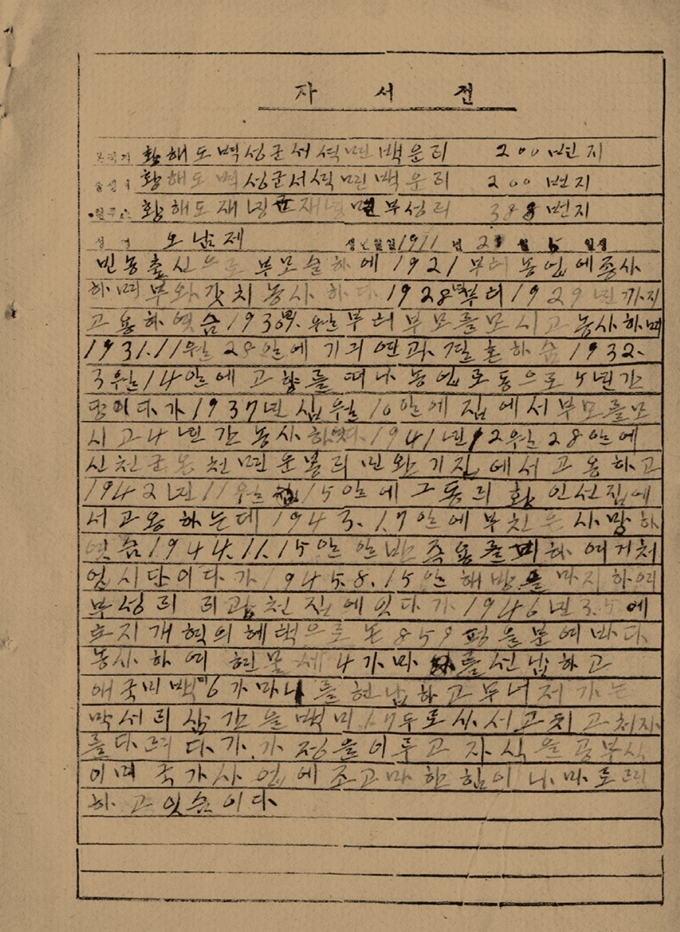 자 서 전
황해도벽성군서석면백운리 200번지
황해도벽성군서석면백운리 200번지
황해도재녕군재녕면부성리 388번지
오남제 1911년 2월
빈농출신으로 부모슬하에 1921부터 농업에종사
하며 부와갓치 농사하다 1928년부터 1929년까지
고용하엿슴 월부터 부모를모시고 농사하며
1931.11월28일에 결혼하슴 1932.
3월14일에 고향를떠나 농업로동으로 5년간
단이다가 1937년 십월 10일에 집에서 부모를모
시고 4년간 농사 1941년12월28일에
신천군온천면운봉리 집에서고용하고
1942년11월 15일에 그동리 황인선집에
서고용하는데 1943.1.7일에 부친은사망하
엿슴 1944.11.15일 일반증용를피하여거처
업시단이다가 1945.8.15일해방를마지하여
부성리 집에잇다가 1946년3.5에
토지개혁의헤택으로 논859평을분여바다
농사하여 현물세4가마 를선납하고
애국미백미6가마니를헌납하고
막서리삼간을백미 두로사서고치고처자
를다려다가 가정을이루고 자식을공부식
이며 국가사업에조고마한힘이나마
하고잇슴이다